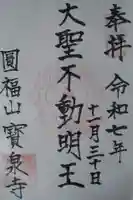 奉拝 令和七年
十一月三十日
大聖不動明王
圓福山寳泉寺